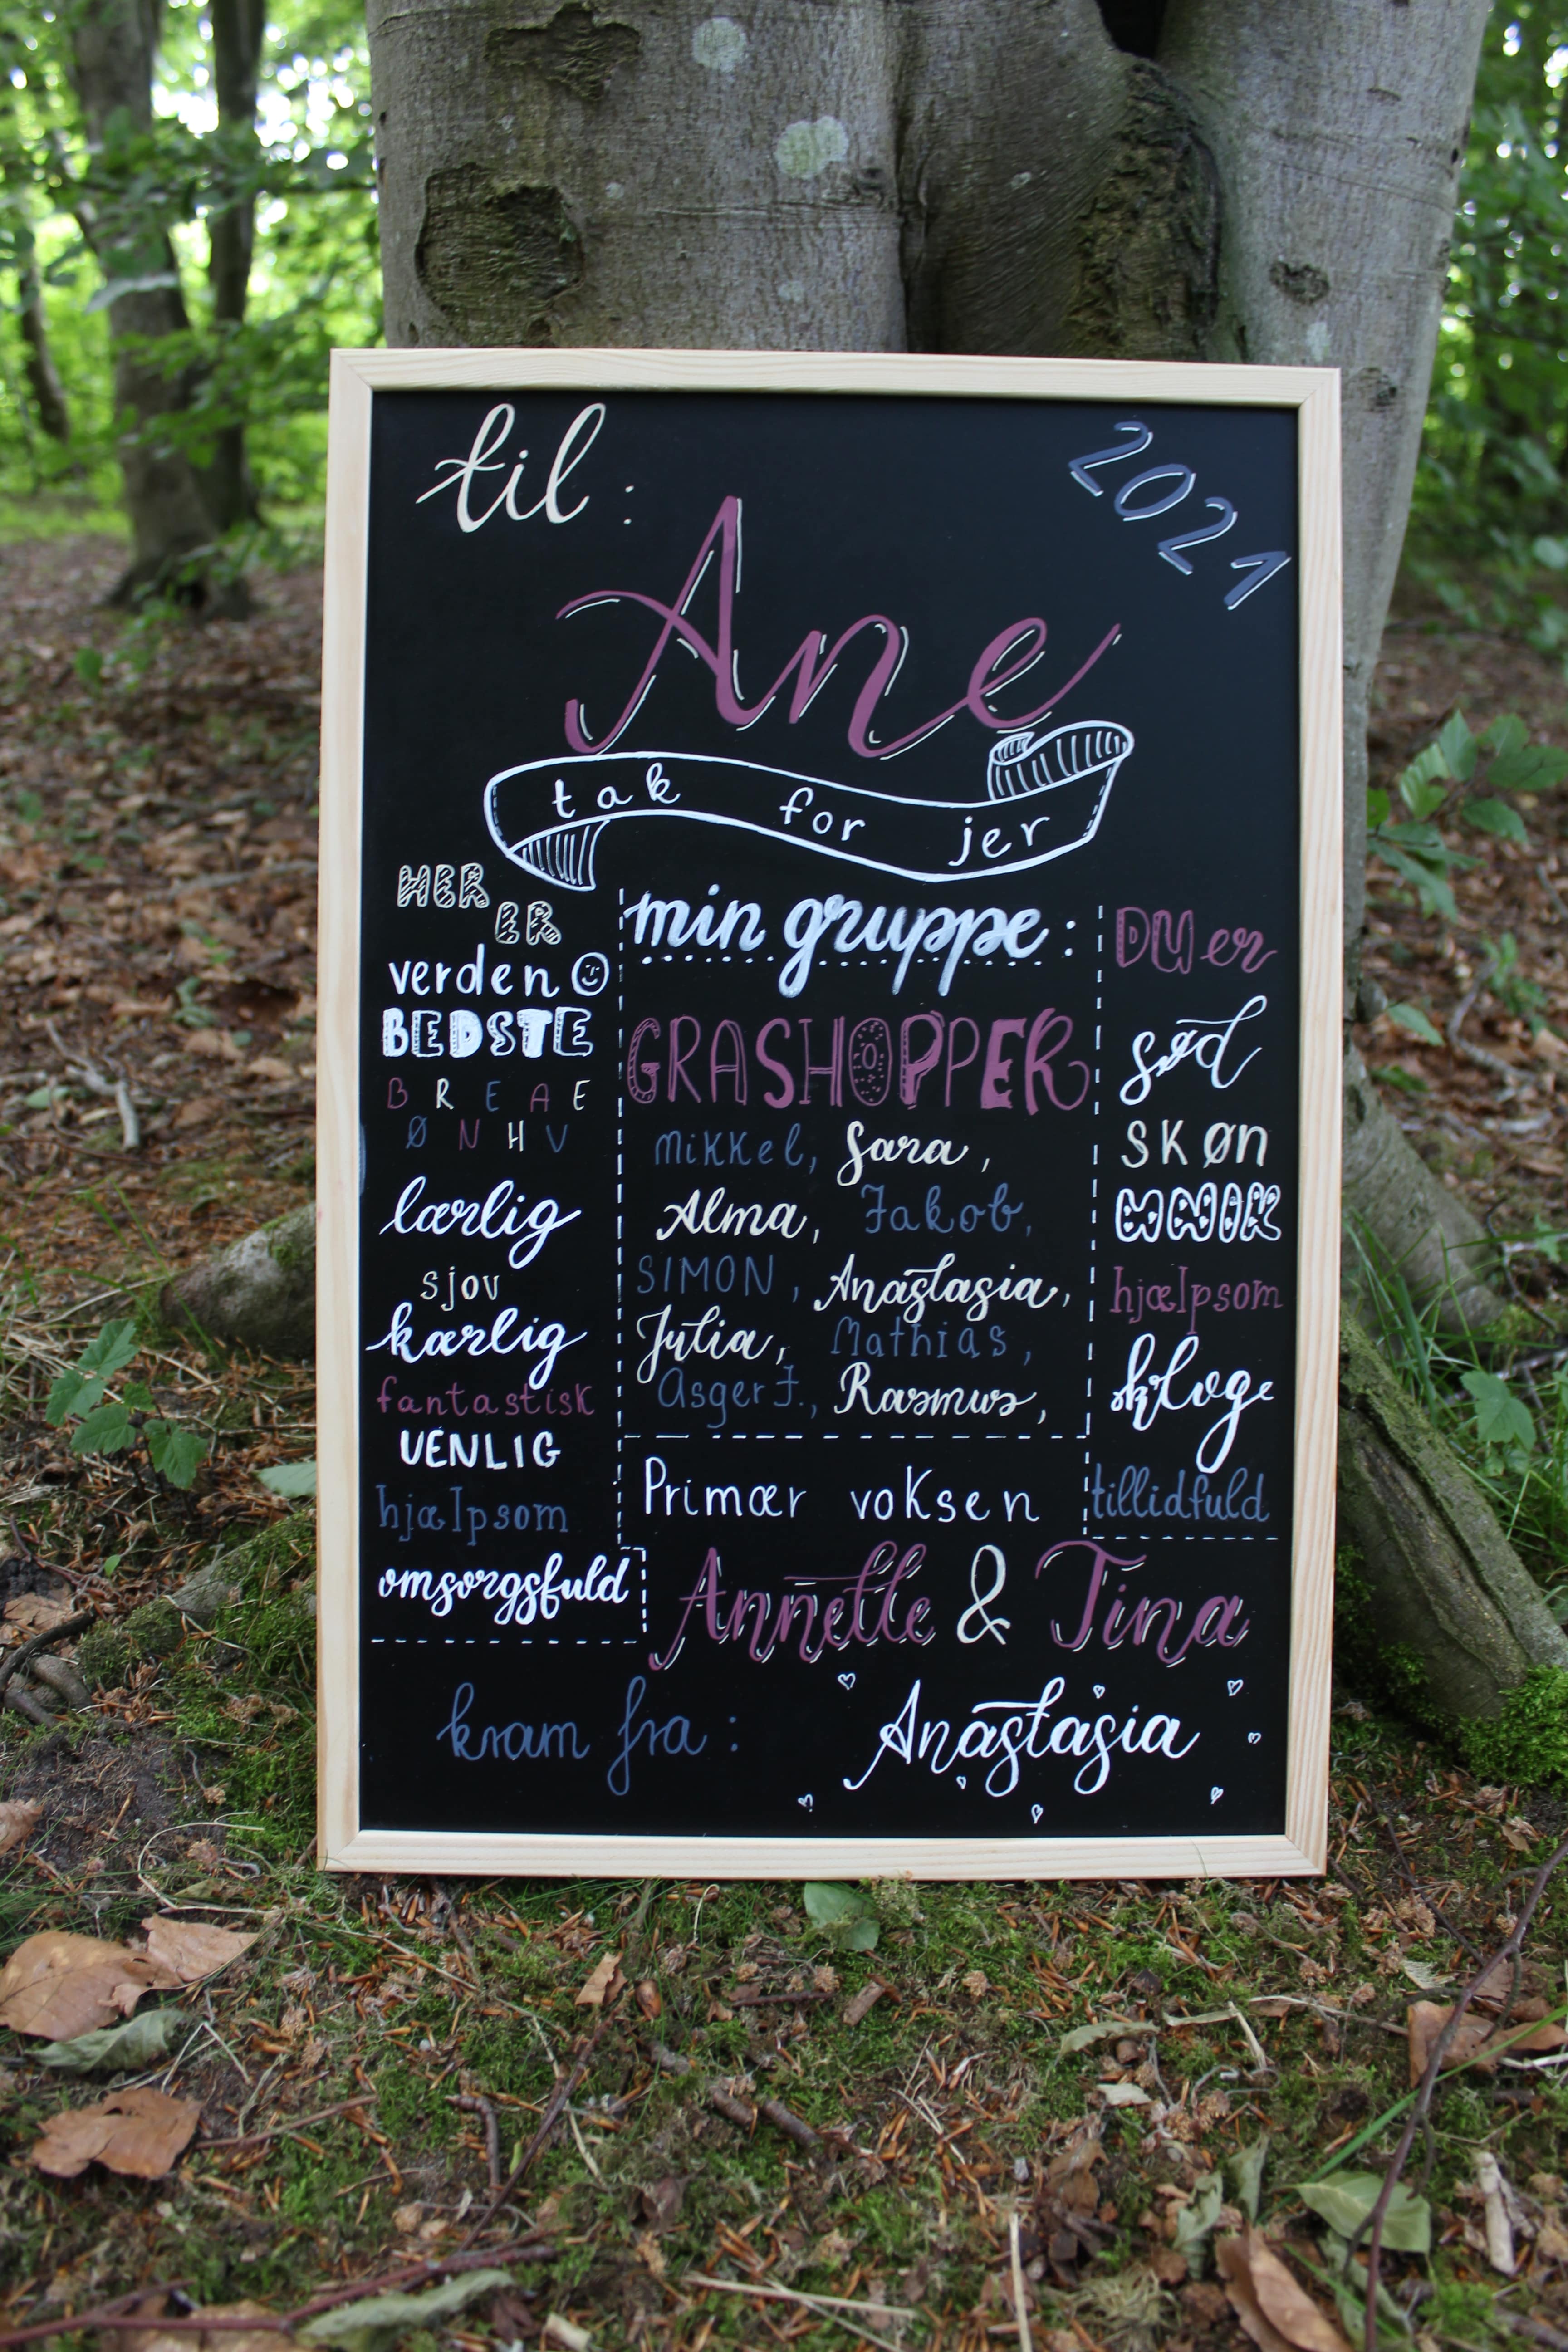 til:
2021
Ane
tak for jer
HER
ER
verden
BEDSTE
B R E A E
Ø N H V
lærlig
sjov
kærlig
fantastisk
VENLIG
hjælpsom
omsorgsfuld
min gruppe:
GRASHOPPER
Mikkel, Sara,
Alma, Jakob,
SIMON, Anastasia,
Julia, Mathias,
Asger J., Rasmus,
Primær voksen
Annette & Tina
DU er
sød
SKØN
UNIK
hjælpsom
kloge
tillidfuld
kram fra: Anastasia